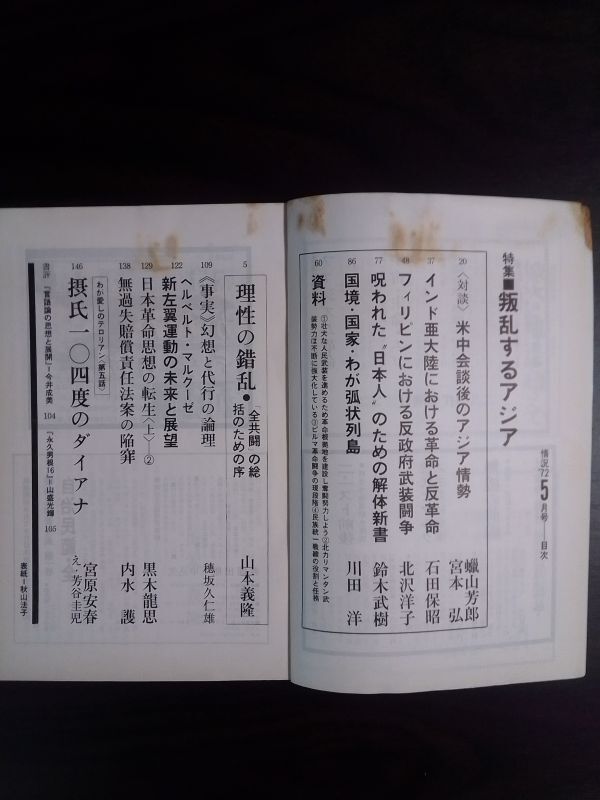 情況'72 5月号―目次
特集■叛乱するアジア
20 〈対談〉 米中会談後のアジア情勢 蠟山芳郎 宮本 弘
37 インド亜大陸における革命と反革命 石田保昭
48 フィリピンにおける反政府武装闘争 北沢洋子
77 呪われた“日本人”のための解体新書 鈴木武樹
86 国境・国家・わが弧状列島 川田 洋
60 資料 ①壮大な人民武装を進めるため革命根拠地を建設し奮闘努力しよう②北カリマンタン武
装勢力は不断に強大化している③ビルマ革命闘争の現段階④民族統一戦線の役割と任務
5 理性の錯乱● 〈全共闘〉の総
括のための序 山本義隆
109 《事実》幻想と代行の論理 穂坂久仁雄
122 ヘルベルト・マルクーゼ
新左翼運動の未来と展望
129 日本革命思想の転生〈上〉② 黒木龍思
138 無過失賠償責任法案の陥穽 内水 護
わが愛しのテロリアン〈第五話〉
146 摂氏一〇四度のダイアナ 宮原安春
え・芳谷圭児
書評 『言語論の思想と展開』=今井成美 104 『永久男根16』=山盛光輝 105
表紙=秋山法子